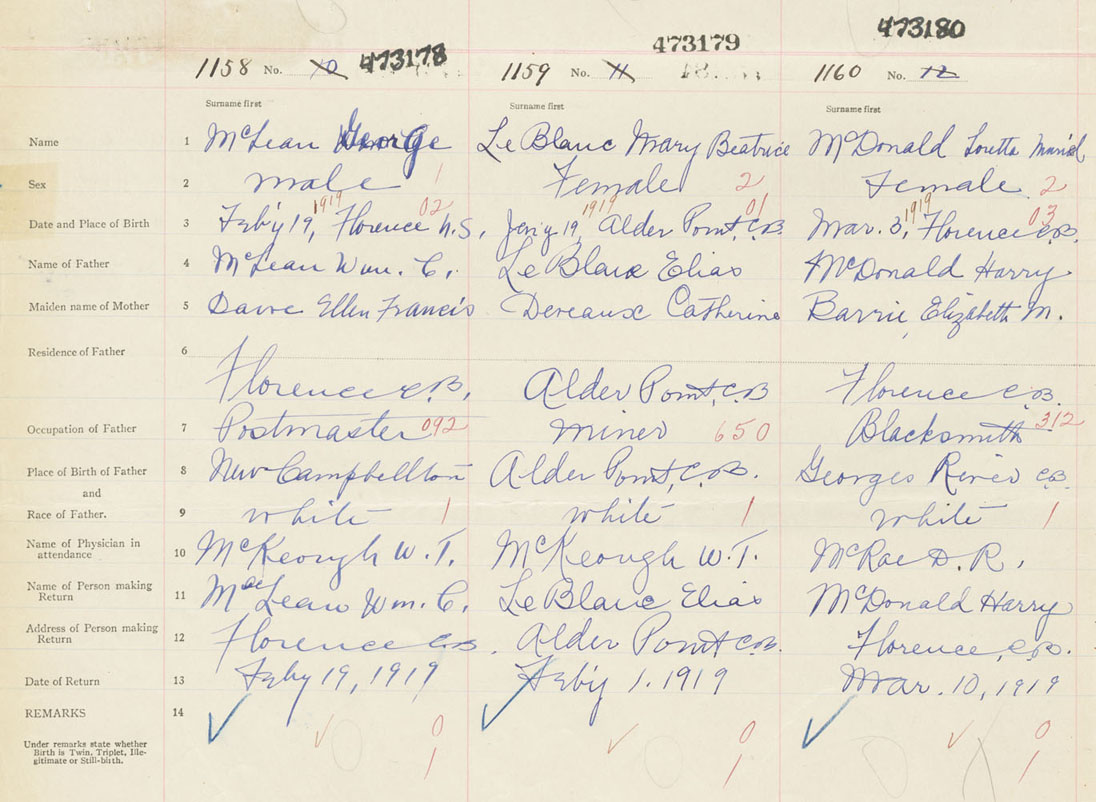 473178 473179 473180
1158 No. 10 1159 No. 11 1160 No. 12
Surname first Surname first Surname first
Name 1 McLean George LeBlanc Mary Beatrice McDonald Loretta
Sex 2 male 1 Female 2 Female 2
1919 02 1919 01 1919 03
Date and Place of Birth 3 Feb'y 19, Florence N.S. Jan'y 19, Alder Point, C.B. Mar. 3, Florence C.B.
Name of Father 4 McLean Wm. C. LeBlanc Elias McDonald Harry
Maiden name of Mother 5 Ellen Francis Deveaux Catherine Barrie, Elizabeth M.
Residence of Father 6
Florence C.B. Alder Point, C.B Florence C.B.
Occupation of Father 7 Postmaster 092 Miner 650 Blacksmith 312
Place of Birth of Father 8 New Campbellton Alder Point, C.B. Georges River C.B.
and
Race of Father. 9 white 1 white 1 white 1
Name of Physician in
attendance 10 McKeough W.T. McKeough W.T. McRae D.R.
Name of Person making
Return 11 MacLean Wm. C. LeBlanc Elias McDonald Harry
Address of Person making
Return 12 Florence C.B. Alder Point C.B. Florence, C.B.
Date of Return 13 Feby 19, 1919 Feb'y 1. 1919 Mar. 10, 1919
REMARKS 14
0 0 0
Under remarks state whether
Birth is Twin, Triplet, Ille-
gitimate or Still-birth.
1 1 1